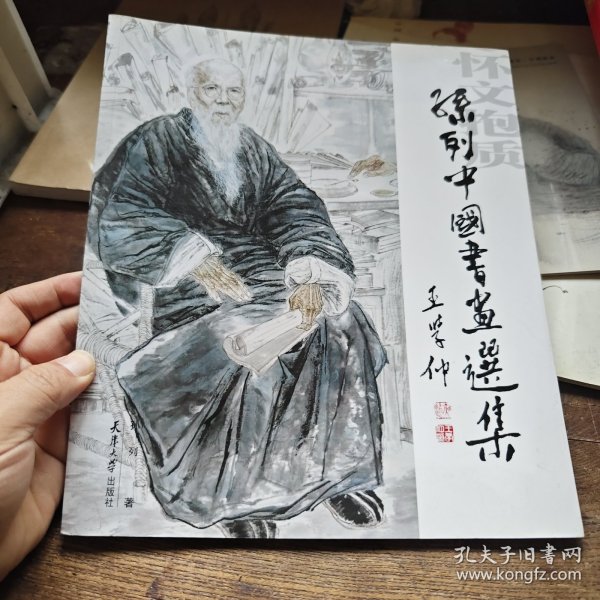 怀文抱质
孫列中國書画選集
王学仲
孙列 著
天津大学出版社
孔夫子旧书网
www.kongfz.com